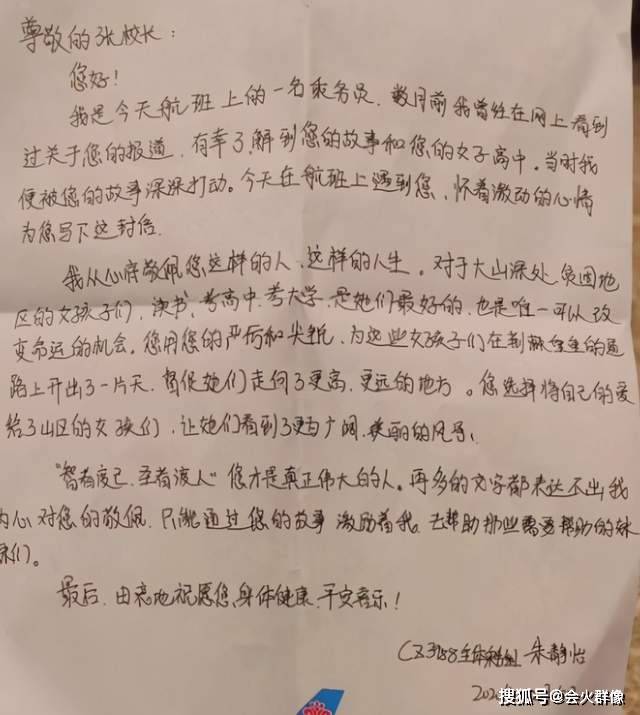 尊敬的张校长：
您好！
我是今天航班上的一名乘务员，数月前我曾经在网上看到
过关于您的报道，有幸了解到您的故事和您的女子高中。当时我
便被您的故事深深打动。今天在航班上遇到您，怀着激动的心情
为您写下这封信。
我从心底敬佩您这样的人，这样的人生。对于大山深处，贫困地
区的女孩子们，读书、考高中、考大学，是她们最好的，也是唯一可以改
变命运的机会。您用您的严厉和尖锐，为这些女孩子们在荆棘丛生的道
路上开出了一片天，督促她们走向了更高、更远的地方。您选择将自己的爱
给了山区的女孩们，让她们看到了更为广阔、美丽的风景。
“智者度己，圣者渡人”您才是真正伟大的人。再多的文字都表达不出我
内心对您的敬佩，只能通过您的故事激励着我，去帮助那些需要帮助的妹
妹们。
最后，由衷地祝愿您，身体健康，平安喜乐！
CZ3158全体乘务组 朱静怡
202
搜狐号@会火群像